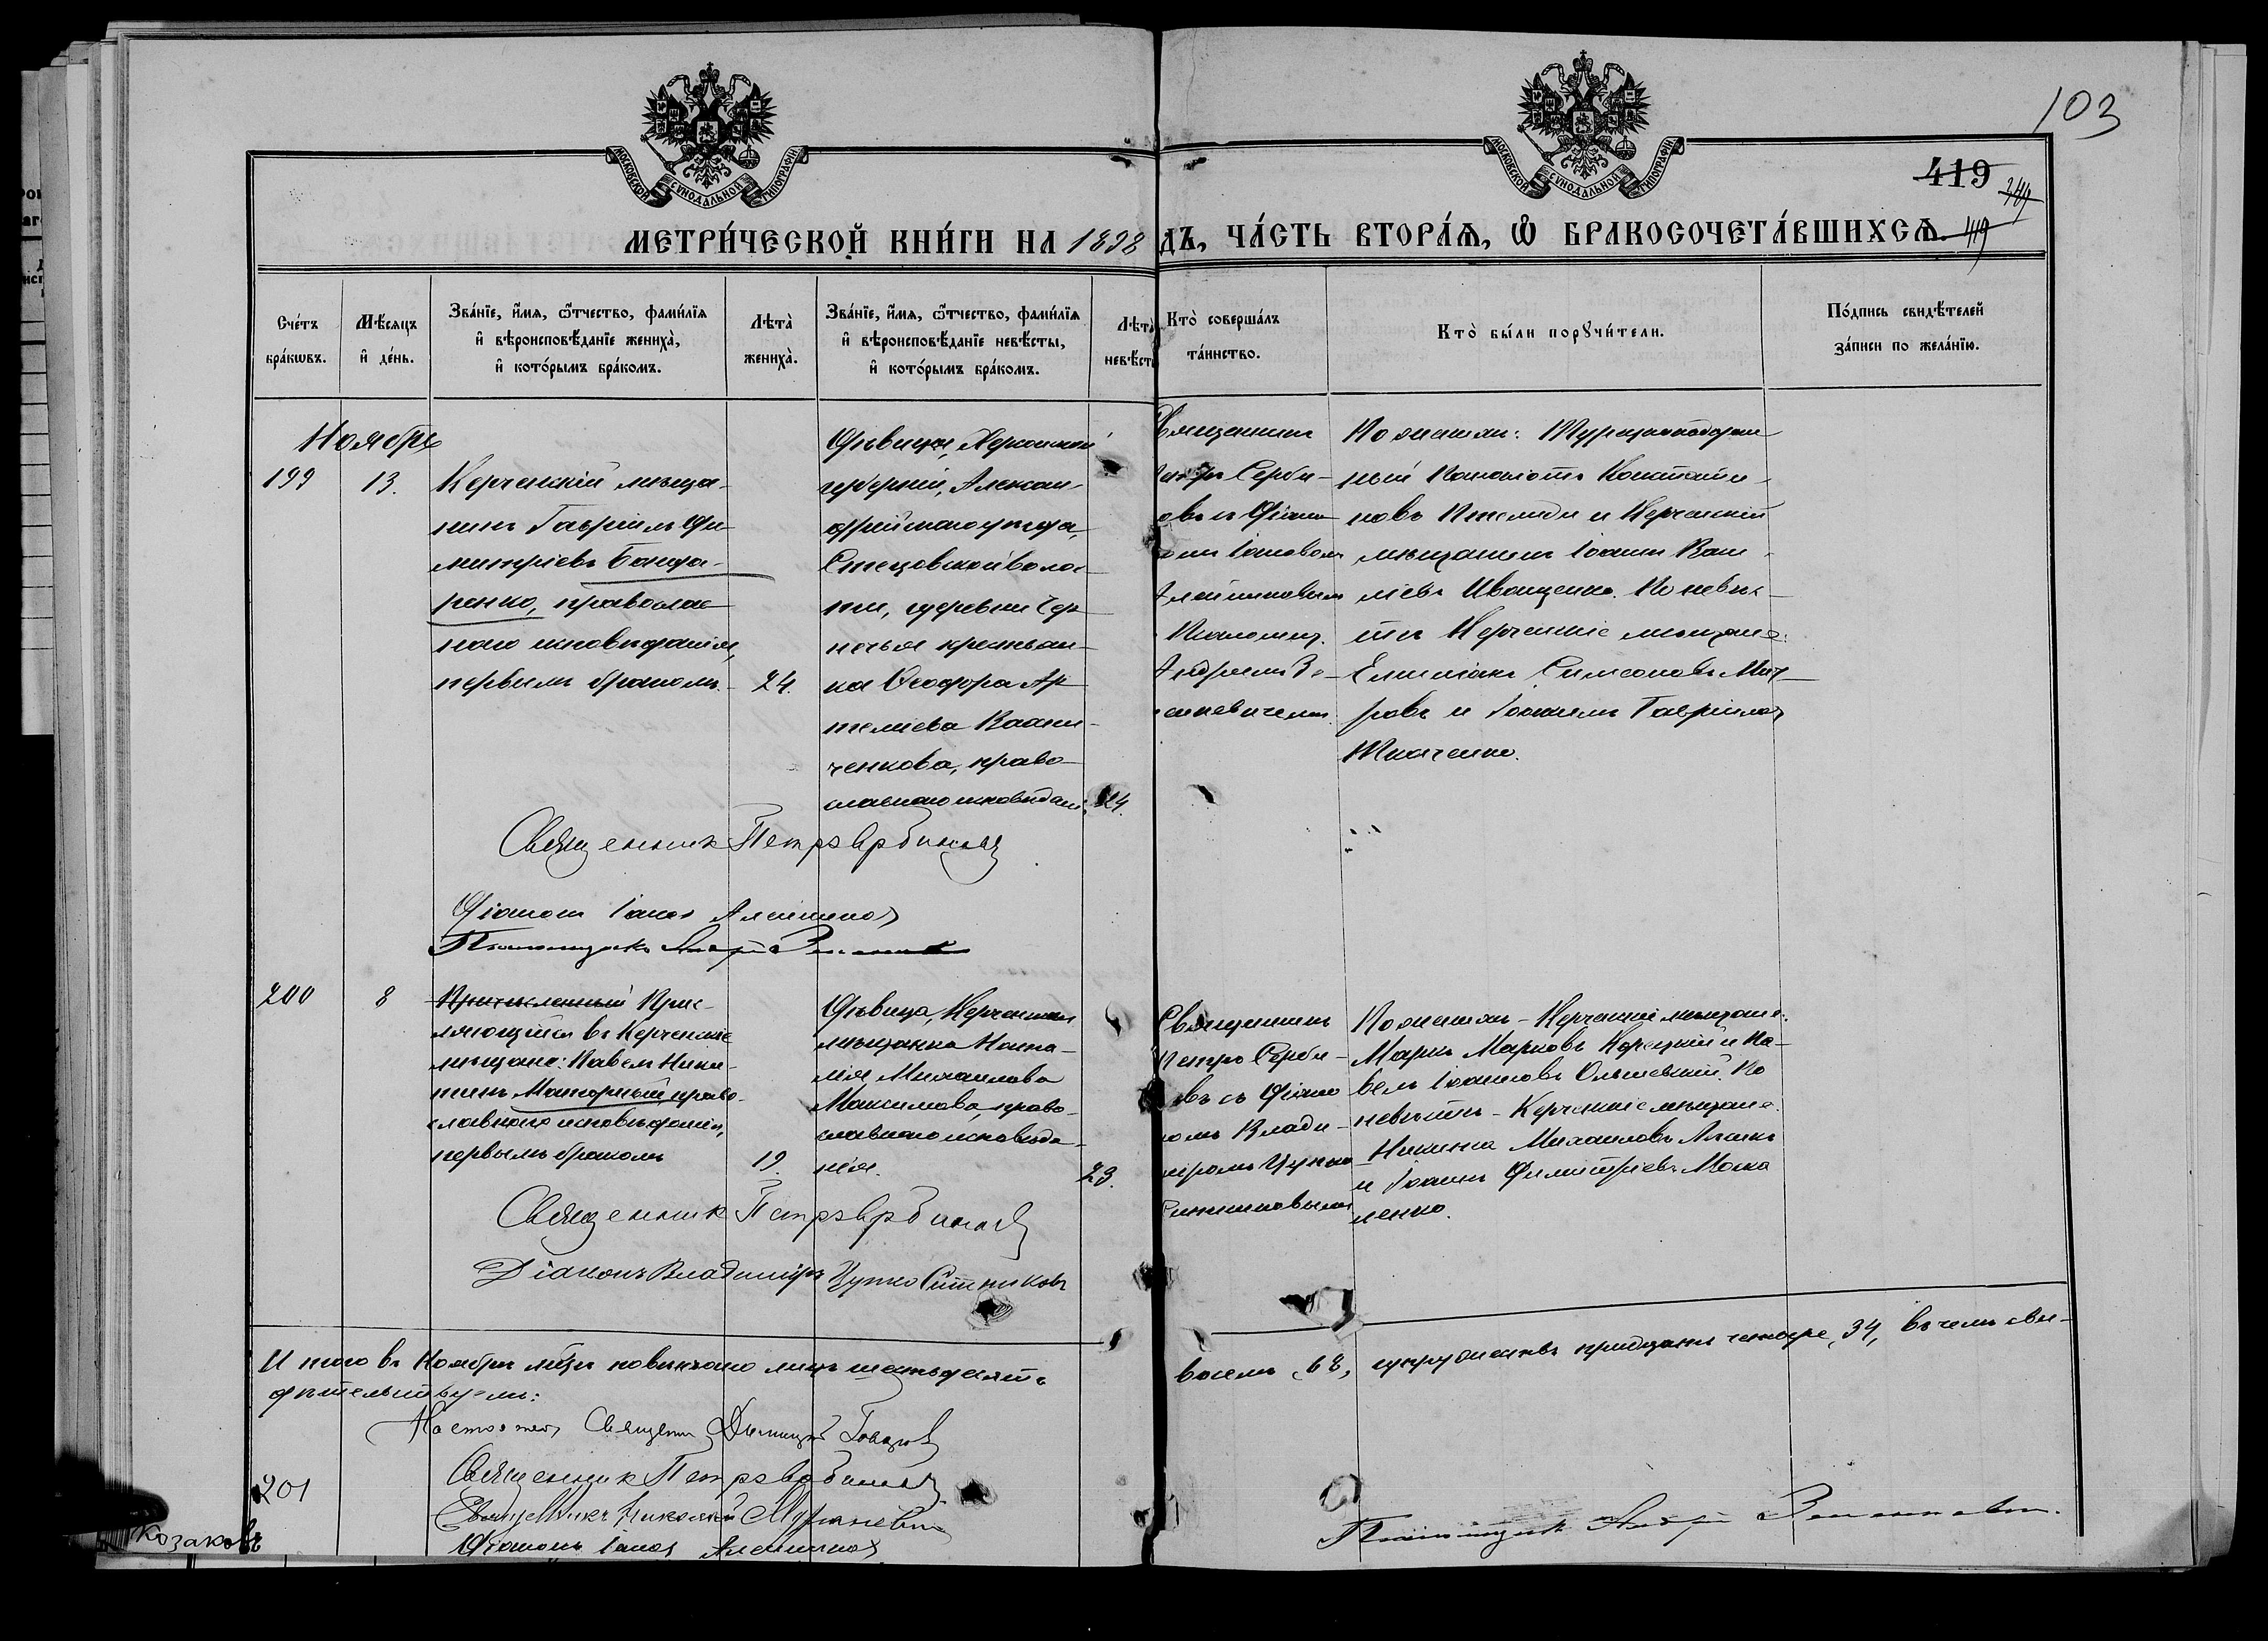 103
МОСКОВСКОЙ СѴНОДАЛЬНОЙ ТИПОГРАФИИ
МОСКОВСКОЙ СѴНОДАЛЬНОЙ ТИПОГРАФИИ
419
МЕТРИ́ЧЕСКОЙ КНИ́ГИ НА 1898
ДЪ, ЧА́СТЬ ВТОРА́Ѧ, Ѽ БРАКОСОЧЕТА́ВШИХСѦ.
419
Сче́тъ бра́кѡвъ.
Мѣ́сяцъ и҆ де́нь.
Зва́нїе, и҆́мя, ѻ҆́тчество, фами́лїя и҆ вѣроисповѣ́данїе жениха̀, и҆ кото́рымъ бра́комъ.
Лѣта̀ жениха̀.
Зва́нїе, и҆́мя, ѻ҆́тчество, фами́лїя и҆ вѣроисповѣ́данїе невѣ́сты, и҆ кото́рымъ бра́комъ.
Лѣта̀ невѣ́сты
Кто̀ соверша́лъ та́инство.
Кто̀ бы́ли порꙋчи́тели.
По́дпись свидѣ́телей за́писи по жела́нїю.
Ноябрь
199
13.
Керченскій мѣща-
нинъ Гавріилъ Ди-
митріевъ Бонда-
ренко, православ-
наго исповѣданія,
первымъ бракомъ.
24.
Дѣвица, Херсонской
губерніи, Алексан-
дрійскаго уѣзда,
Стецовской волос-
ти, деревни Чер-
нечья крестьян-
ка Ѳеодора Ар-
темиева
ченкова, право-
славнаго исповѣдані
24.
Священникъ
Петръ Серби-
овъ съ Діако-
номъ Іаковомъ
Алейниковымъ
Псаломщ.
Андреемъ Зе-
ленкевичемъ.
По женихѣ: Турецкоподдан-
ный Панаіотъ Константи-
новъ и Керченскій
мѣщанинъ Іоаннъ Васи-
ліевъ Иващенко. По невѣс-
тѣ Керченскіе мѣщане:
Симеоновъ
ровъ и Іоакимъ Гавріиловъ
Ткаченко.
Священникъ Петръ Сербиновъ
Діаконъ Іаковъ Алейниковъ
Псаломщикъ Андрей
200
8
Причисленный Прис-
ляющійся въ Керченскіе
мѣщане: Павелъ Ники-
тинъ Маторный, право-
славнаго исповѣданія,
первымъ бракомъ
19.
Дѣвица, Керченская
мѣщанка Ната-
лія Михаилова
Максимова, право-
славнаго исповѣда-
нія.
23.
Священникъ
Петръ Серби-
овъ съ Діако
номъ Влади-
міромъ Цупко
Ситниковымъ
По женихѣ - Керченскіе мѣщане:
Маркъ Марковъ Корецкій и Па-
велъ Іоанновъ Ольшевскій. По
невѣстѣ - Керченскіе мѣщане
Никита Михаиловъ
и Іоаннъ Димитріевъ Моска
ленко.
Священникъ Петръ Сербиновъ
Діаконъ Владиміръ Цупко Ситниковъ
Итого въ Ноябрѣ мѣсяцѣ повѣнчано лицъ шестьдесятъ
восемь, 68, супружествъ тридцать четыре, 34, въ чемъ сви-
дѣтельствуемъ:
Настоятель Священникъ Димитрій
Священникъ Петръ Сербиновъ
201
Священникъ Николай
Діаконъ Іаковъ Алейниковъ
Псаломщикъ Андрей Зеленкевичъ.
Козаковъ